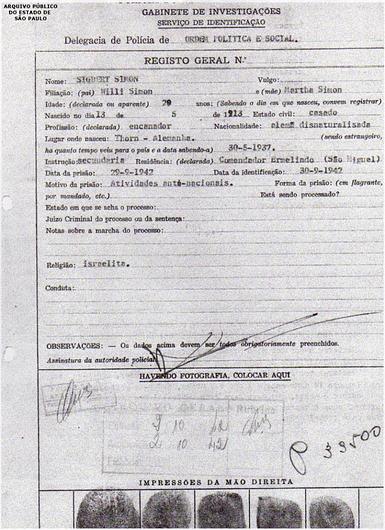 ARQUIVO PÚBLICO
DO ESTADO DE
SÃO PAULO
GABINETE DE INVESTIGAÇÕES
SERVIÇO DE IDENTIFICAÇÃO
Delegacia de Polícia de ORDEM POLITICA E SOCIAL.
REGISTO GERAL N.º
Nome: SIGBERT SIMON Vulgo:
Filiação: (pai) Willi Simon e (mãe) Martha Simon
Idade: (declarada ou aparente) 29 anos; (Sabendo o dia em que nasceu, convem registrar)
Nascido no dia 13 de 5 de 1913 Estado civil: casado
Profissão: (declarada) encanador Nacionalidade: alemã disnaturalizada
Lugar onde nasceu: Thorn - Alemanha. (sendo estrangeiro,
ha quanto tempo veiu para o país e a data sabendo-a) 30-5-1937.
Instrução: secundaria Residência: (declarada) Comendador Ermelindo (São Miguel)
Data da prisão: 29-9-1942 Data da identificação: 30-9-1942
Motivo da prisão: Atividades anti-nacionais. Forma da prisão: (em flagrante,
por mandado, etc.) Está sendo processado?
Estado em que se acha o processo:
Juizo Criminal do processo ou da sentença:
Notas sobre a marcha do processo:
Religião: israelita.
Conduta:
OBSERVAÇÕES: — Os dados acima devem ser todos obrigatoriamente preenchidos.
Assinatura da autoridade policial
HAVENDO FOTOGRAFIA, COLOCAR AQUI
10 42
2 10 42
33500
IMPRESSÕES DA MÃO DIREITA